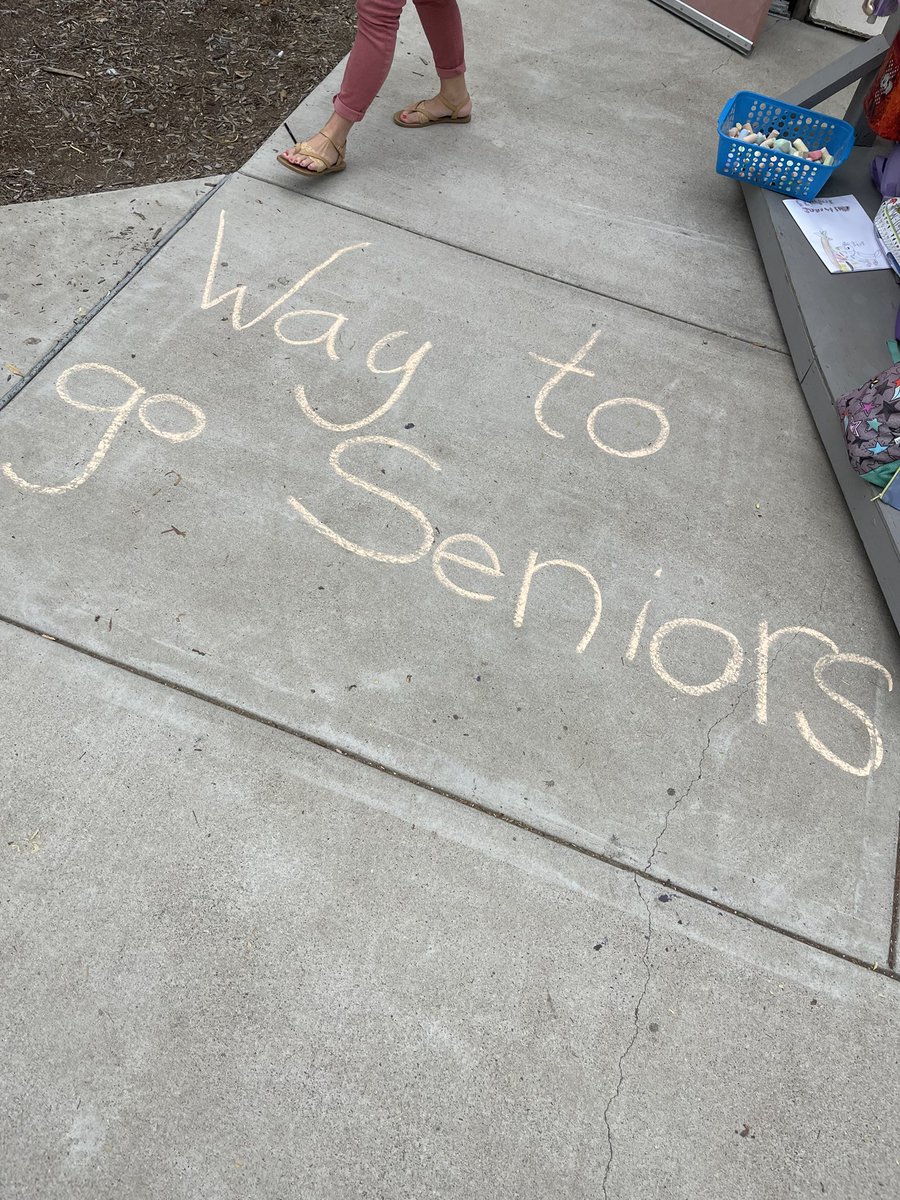 Way to
go Seniors